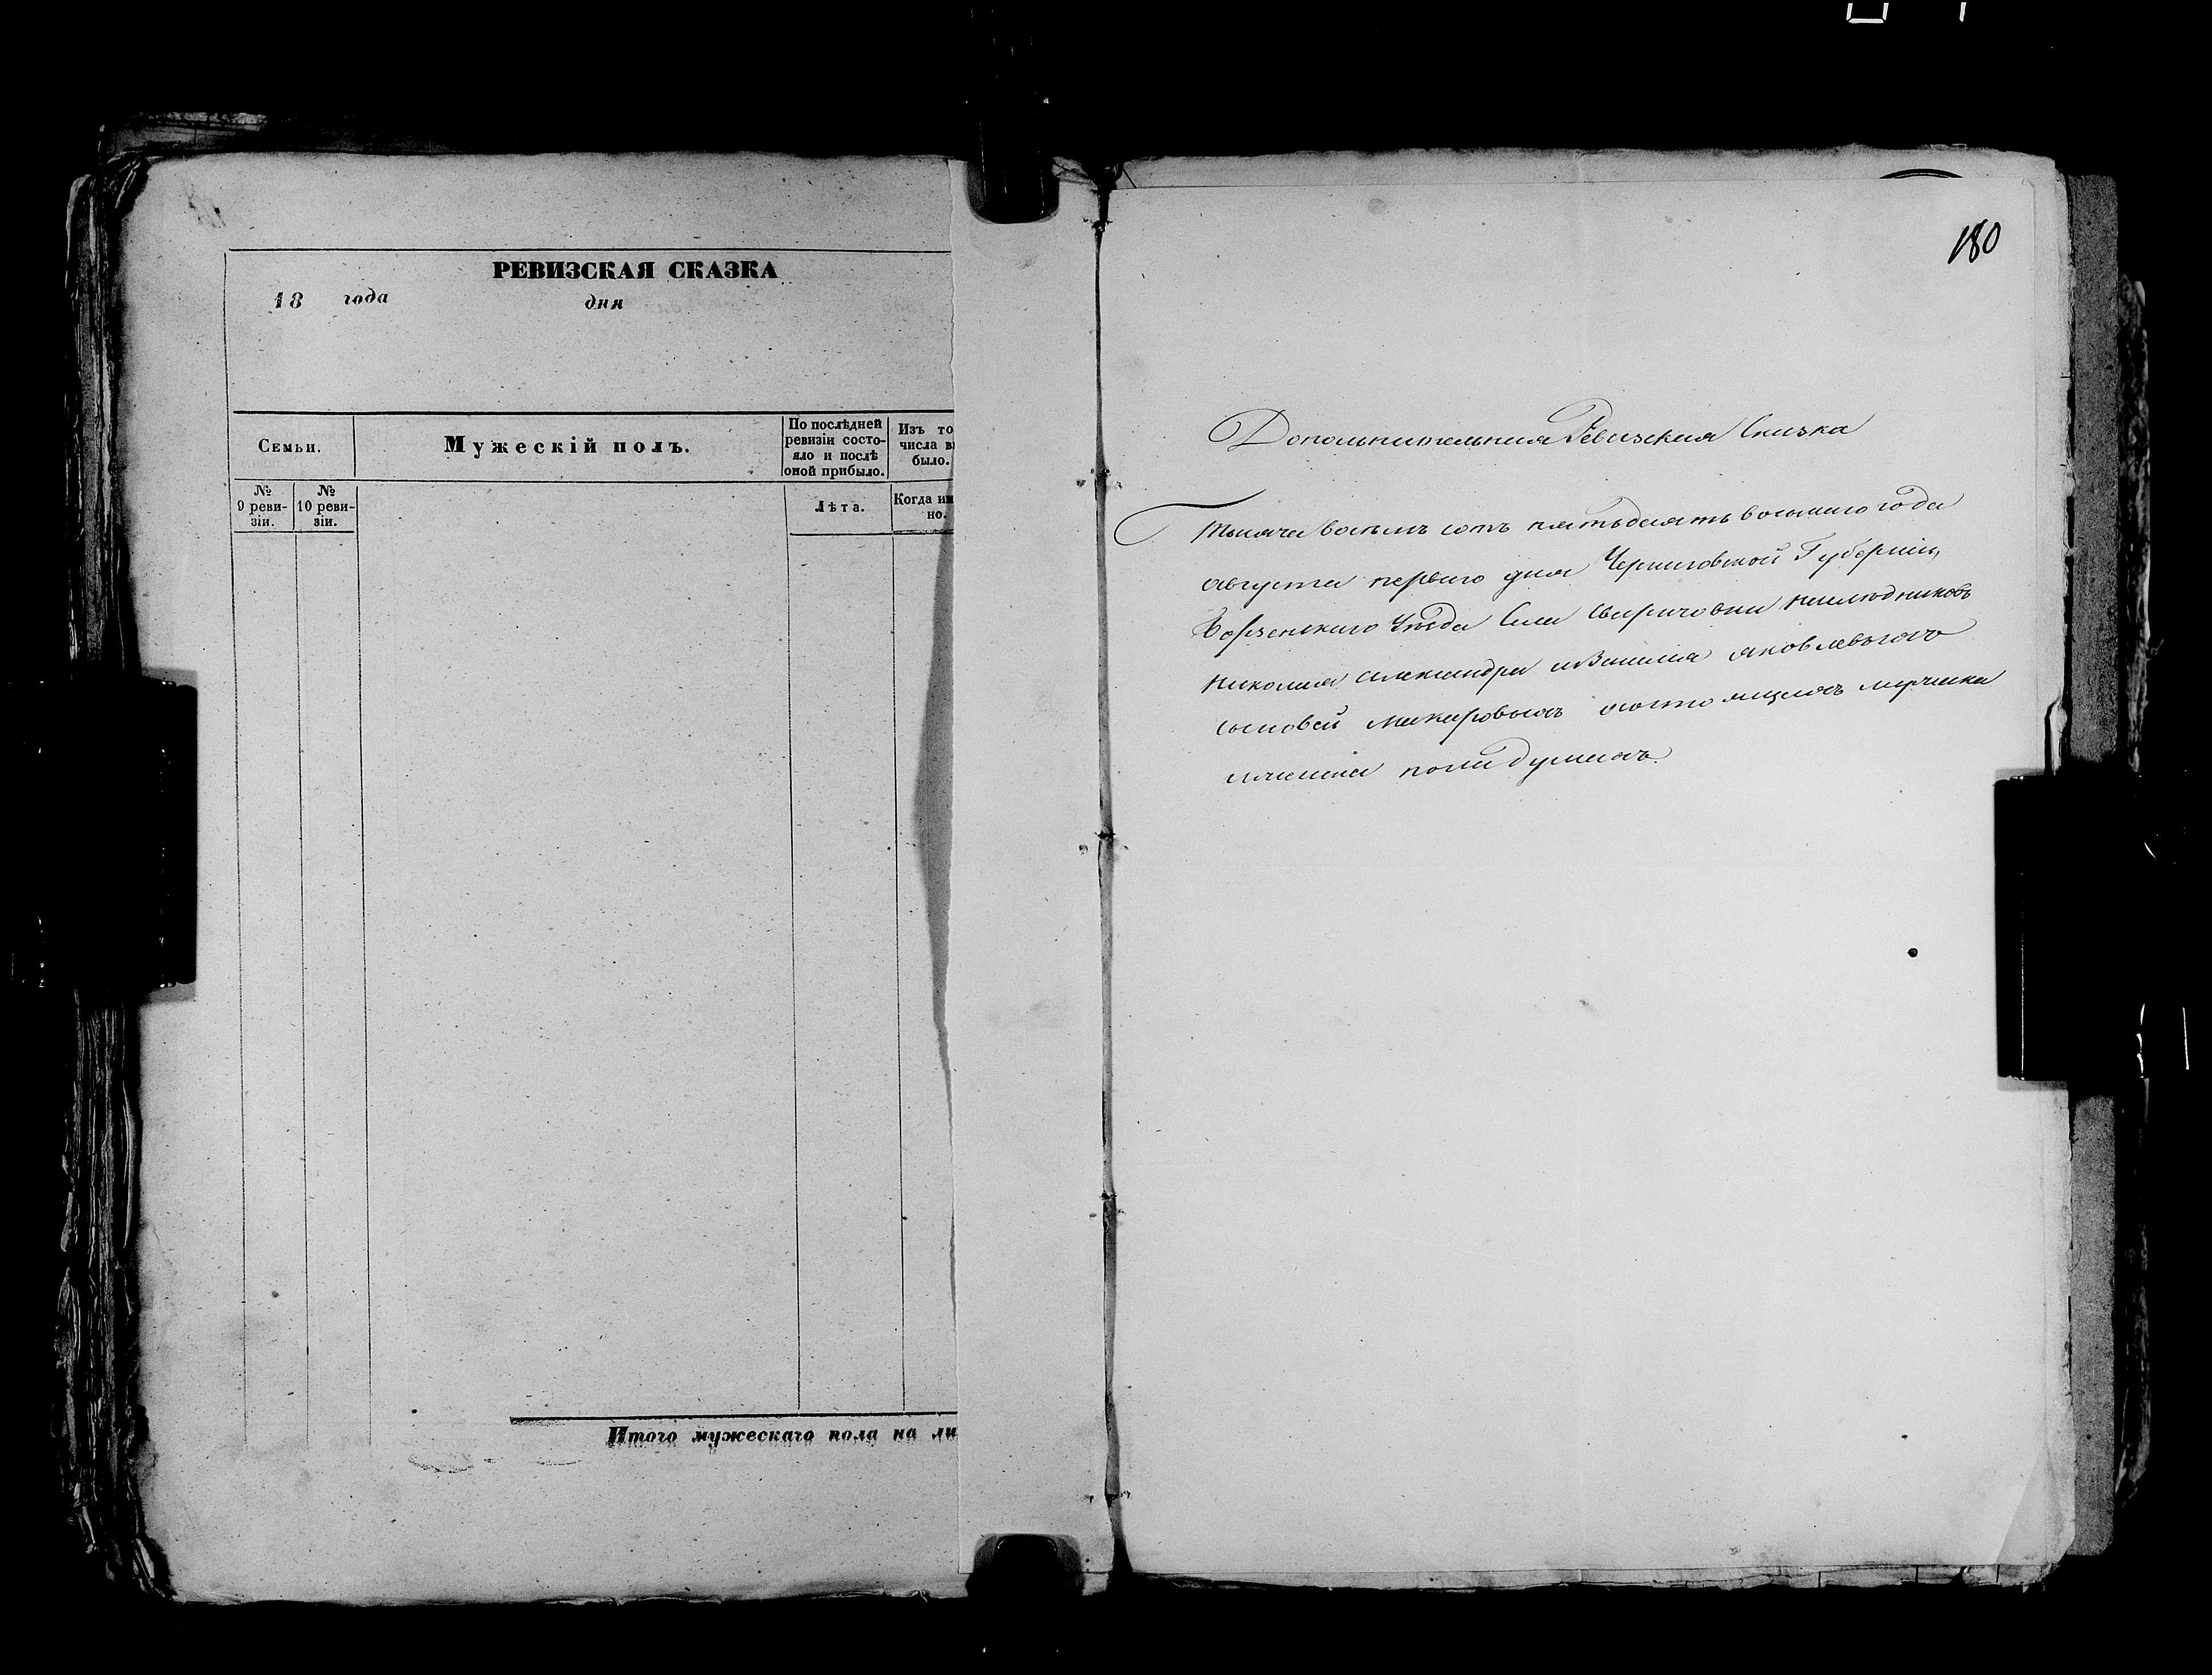 РЕВИЗСКАЯ СКАЗКА
18 года дня
Семьи.
Мужескій полъ.
По послѣдней
ревизіи состо-
яло и послѣ
оной прибыло.
Изъ то
числа в
было.
№
9 реви-
зіи.
№
10 реви-
зіи.
Лѣта.
Когда им
но.
Итого мужескаго пола на ли
180
Дополнительная Ревизская Сказка
Тысяча восемь сотъ пятьдесятъ восьмаго года
августа перваго дня Черниговской Губерніи,
Борзенскаго Уѣзда Села
Николая Александра и Василия Яковлевыхъ
сыновей Макаровыхъ
душахъ.